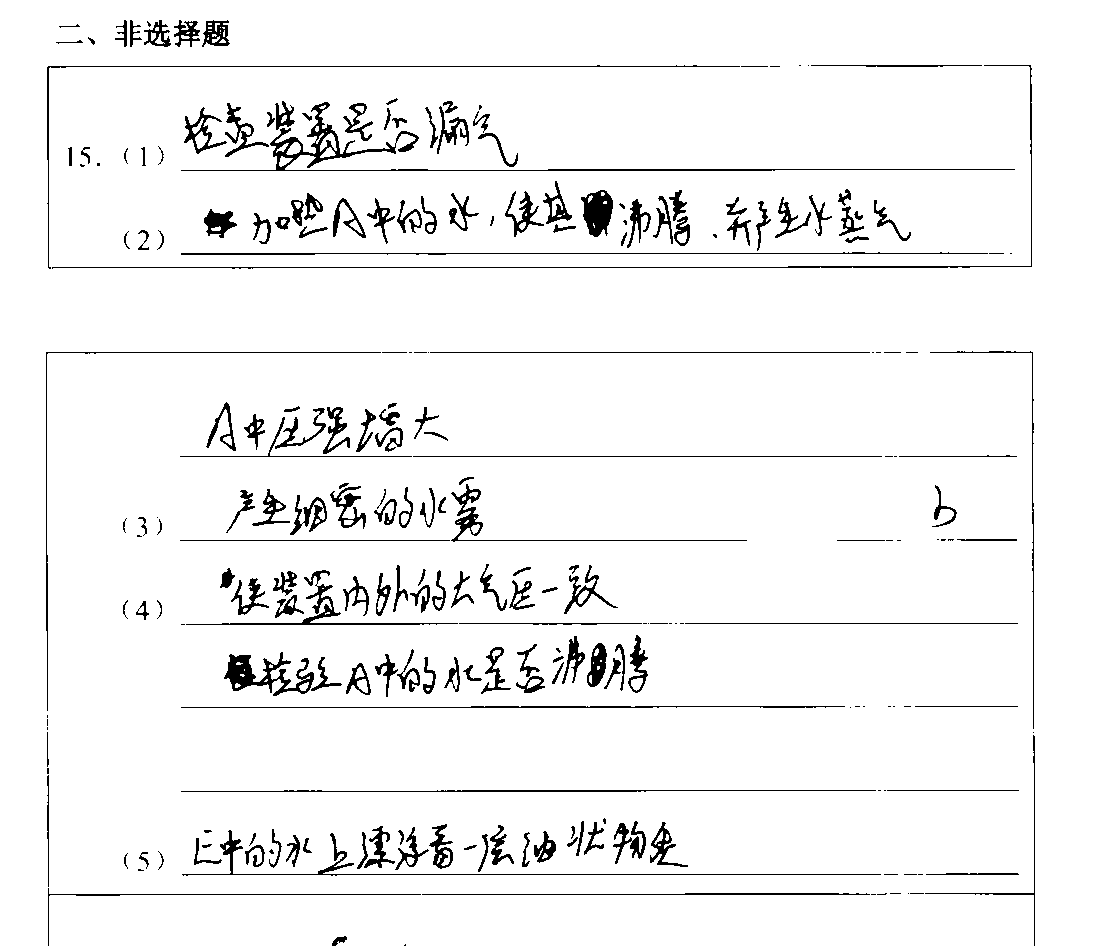 二、非选择题
15.(1) 检查装置是否漏气
(2) 加热A中的水,使其沸腾.并产生水蒸气
A中压强增大
(3) 产生细密的水雾 b
(4) 使装置内外的大气压一致
检验A中的水是否沸腾
(5) E中的水上漂浮着一层油状物质